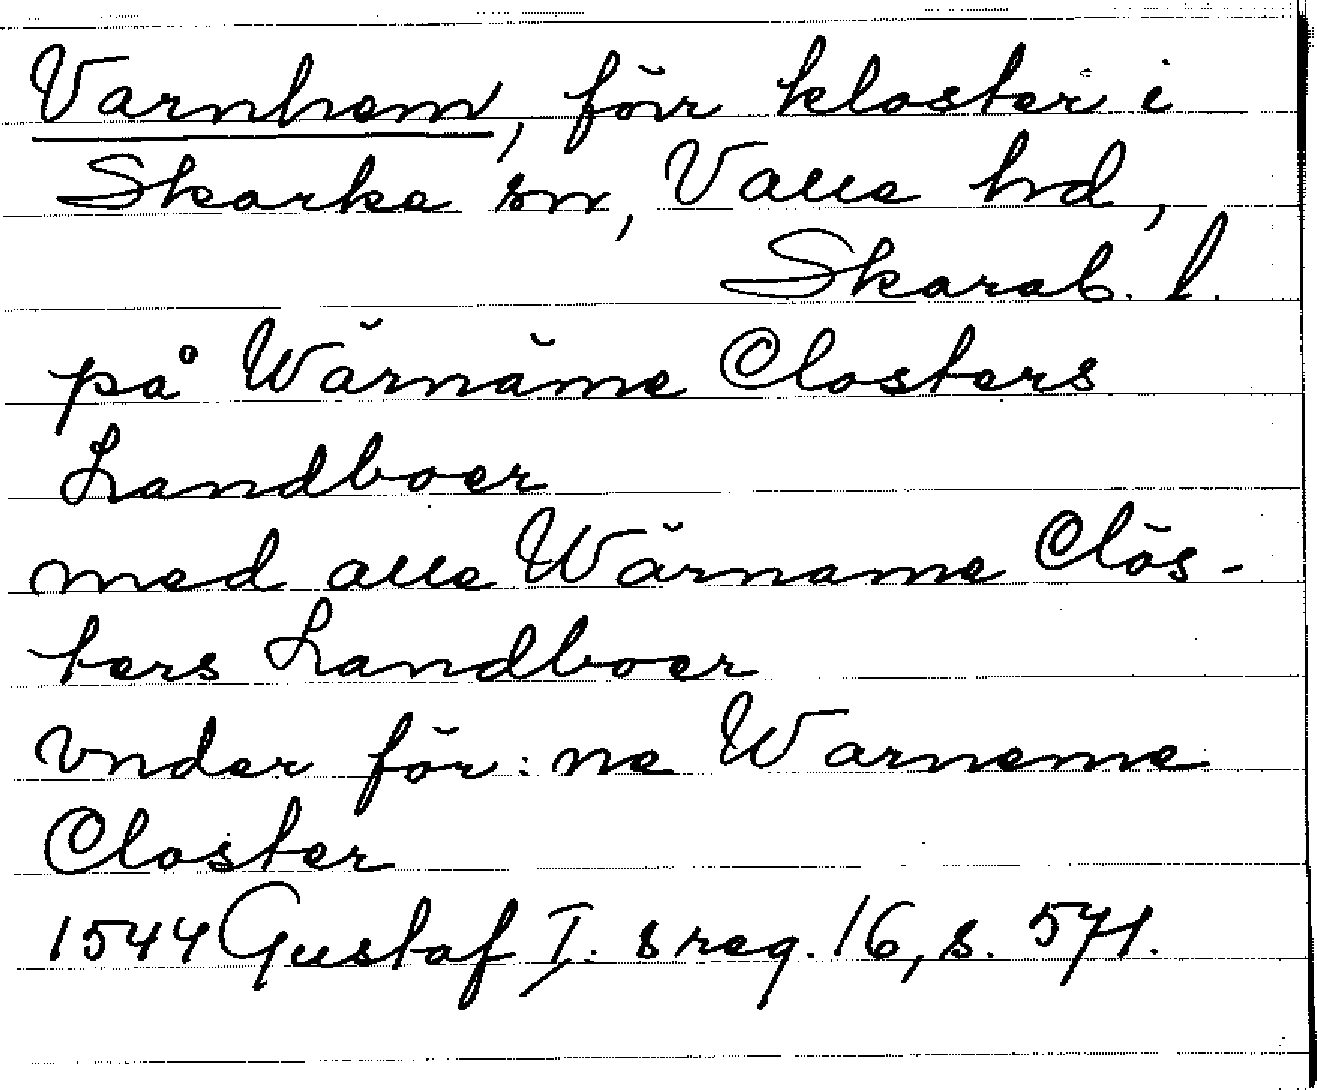 Varnhem, förr kloster i
Skarke sn, Valle hd,
Skarab. l.
på Wärnäme Closters
Landboer
med alle Wärname Clös-
ters Landboer
vnder för: ne Warneme
Closter
1544 Gustaf I:s reg. 16, s. 571.